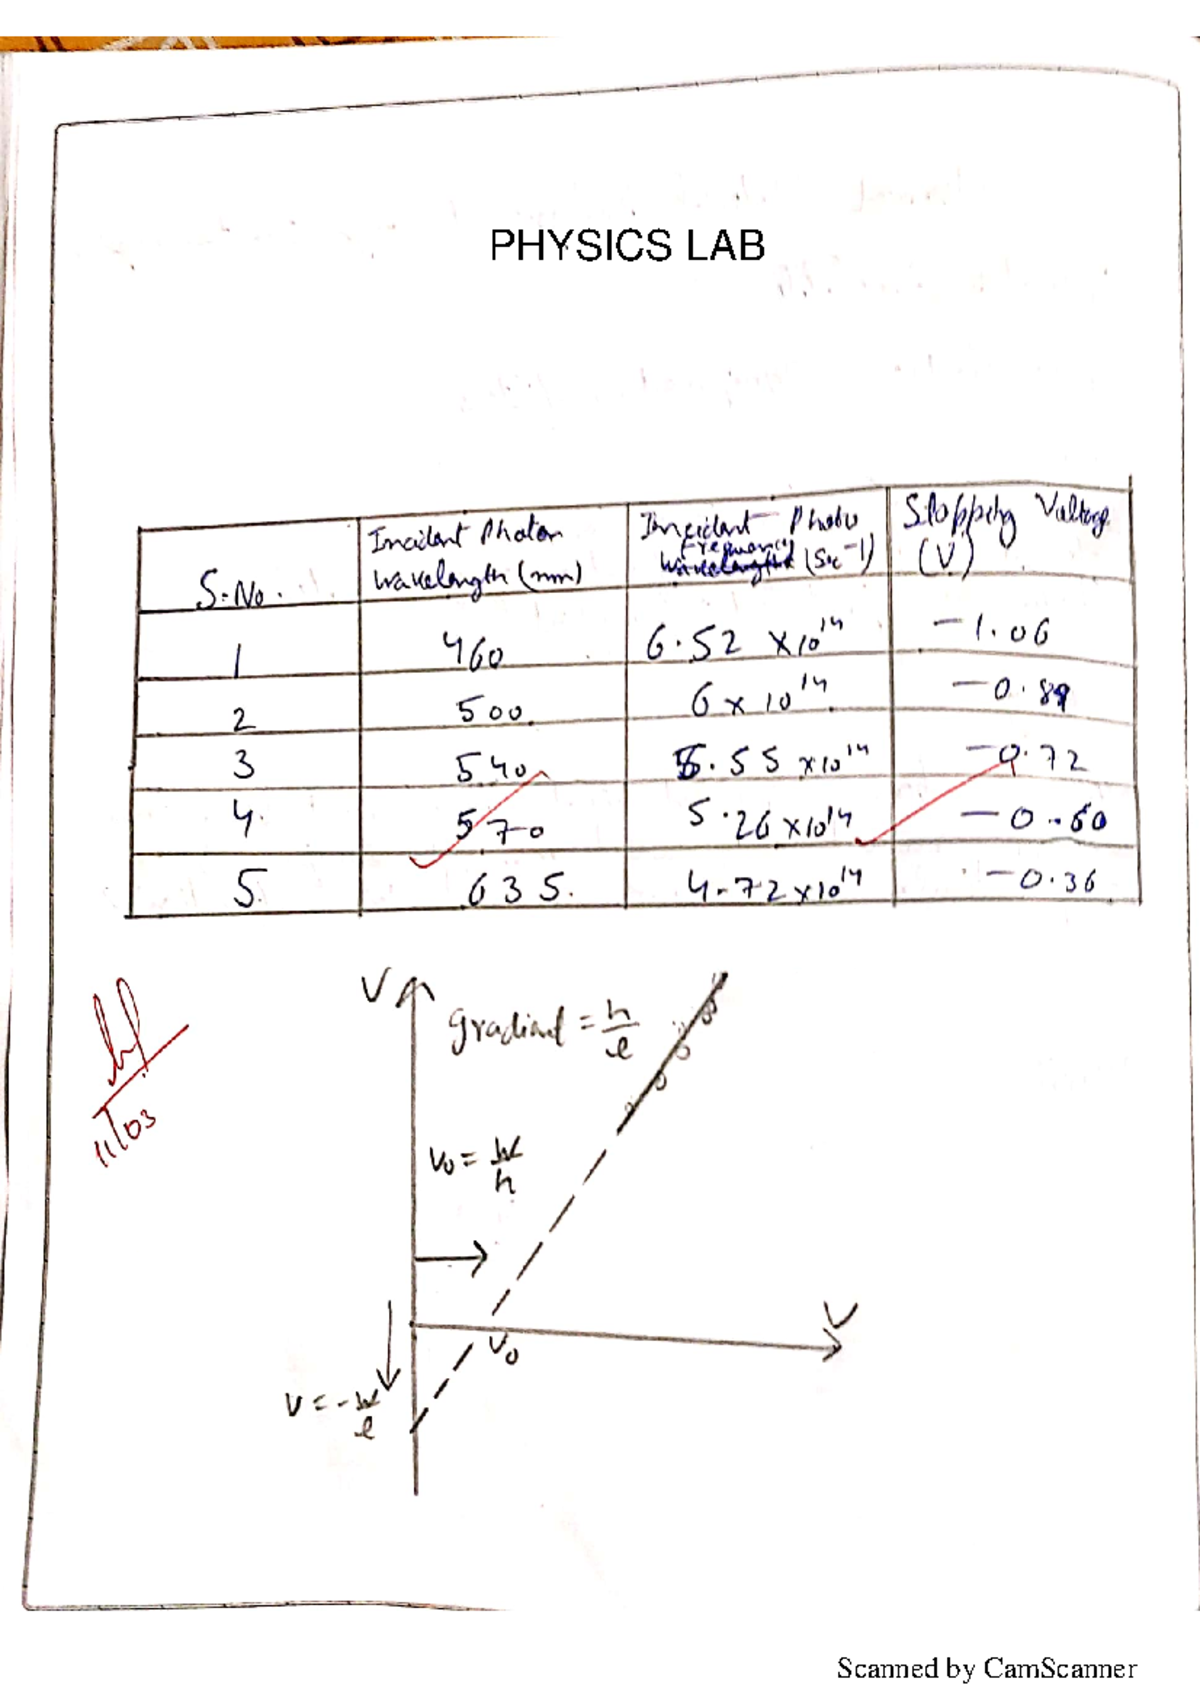 PHYSICS LAB
S.No.
Incident Photon
wavelength (nm)
Incident Photo
frequency
wavelength (Sec⁻¹)
Stopping Voltage
(V)
1 460 6.52 × 10¹⁴ -1.06
2 500 6 × 10¹⁴ -0.89
3 540 5.55 × 10¹⁴ -0.72
4. 570 5.26 × 10¹⁴ -0.60
5. 635. 4.72 × 10¹⁴ -0.36
V
gradient = h/e
ν₀ = W/h
ν
ν₀
V = -W/e
11/03
Scanned by CamScanner